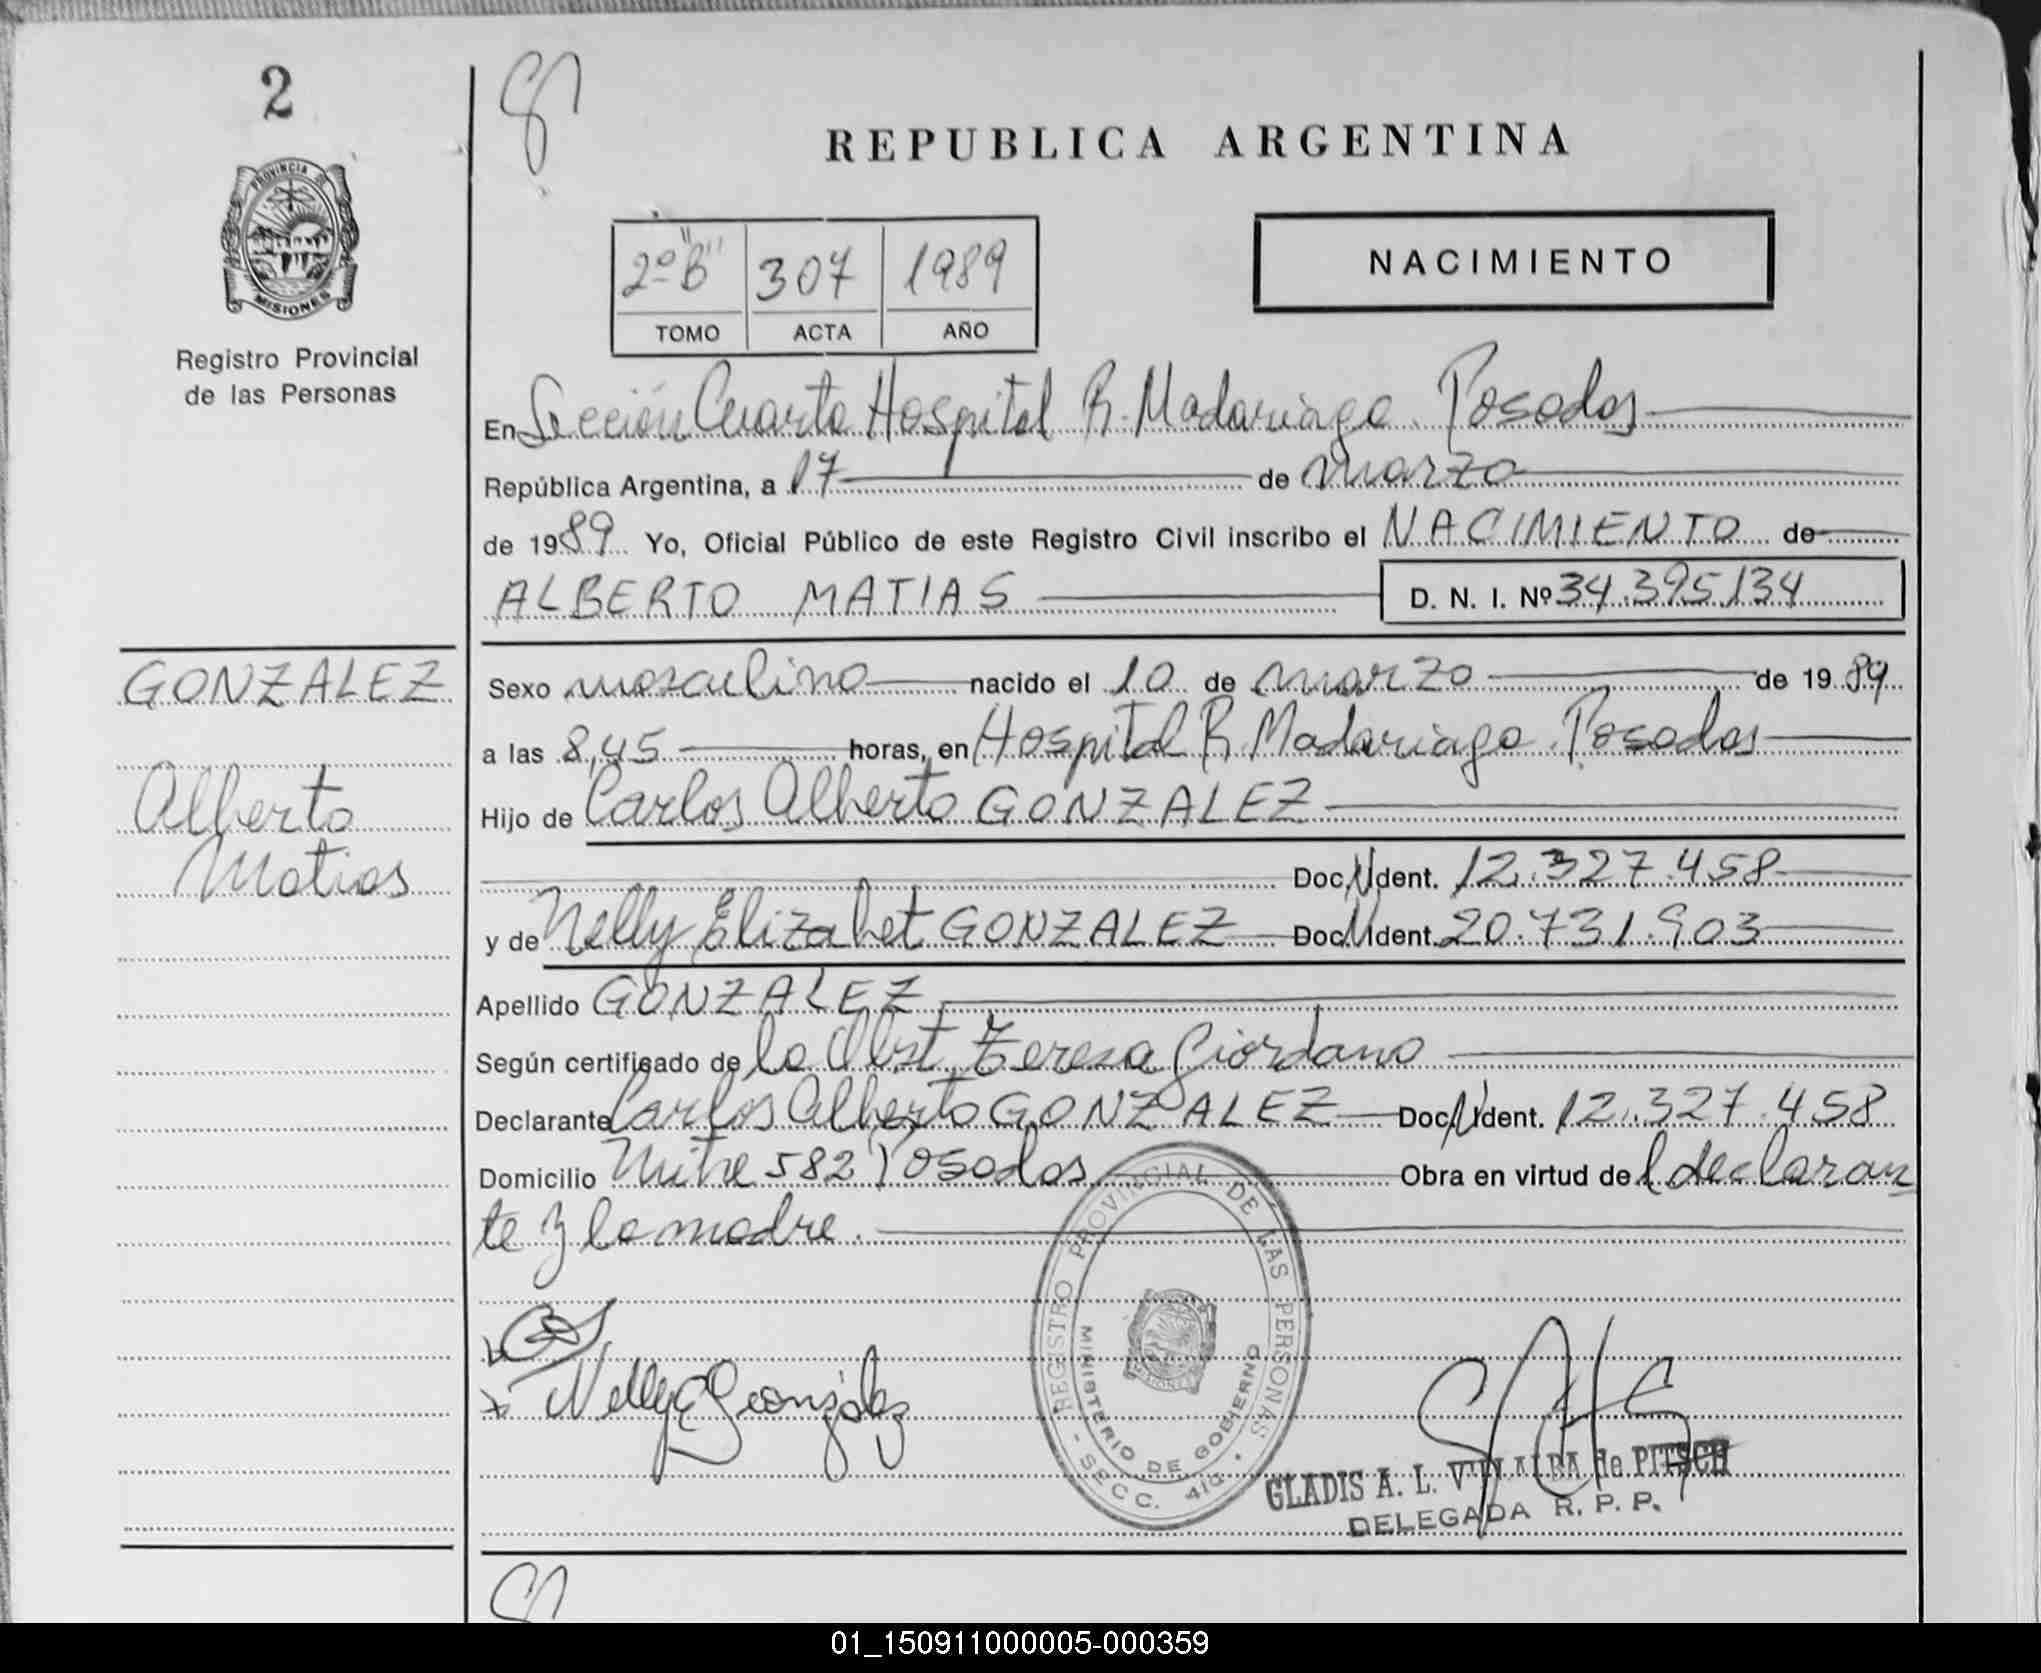 2
REPUBLICA ARGENTINA
PROVINCIA
MISIONES
Registro Provincial
de las Personas
2º "B" 307 1989
TOMO ACTA AÑO
NACIMIENTO
En Sección Cuarta Hospital R. Madariaga. Posadas
República Argentina, a 17 de marzo
de 1989 Yo, Oficial Público de este Registro Civil inscribo el NACIMIENTO de
ALBERTO MATIAS D. N. I. Nº 34.395134
GONZALEZ
Alberto
Matias
Sexo masculino nacido el 10 de marzo de 1989
a las 8,45 horas, en Hospital R. Madariaga. Posadas
Hijo de Carlos Alberto GONZALEZ
Doc. N. Ident. 12.327.458
y de Nelly Elizabet GONZALEZ Doc. N. Ident. 20.731.903
Apellido GONZALEZ
Según certificado de la Obst. Teresa Giordano
Declarante Carlos Alberto GONZALEZ Doc. N. Ident. 12.327.458
Domicilio Mitre 582 Posadas Obra en virtud de l declaran
te y la madre.
Nelly E González
REGISTRO PROVINCIAL DE LAS PERSONAS
MINISTERIO DE GOBIERNO
SECC. 4ta.
GLADIS A. L. VILLALBA de PITSCH
DELEGADA R. P. P.
01_150911000005-000359